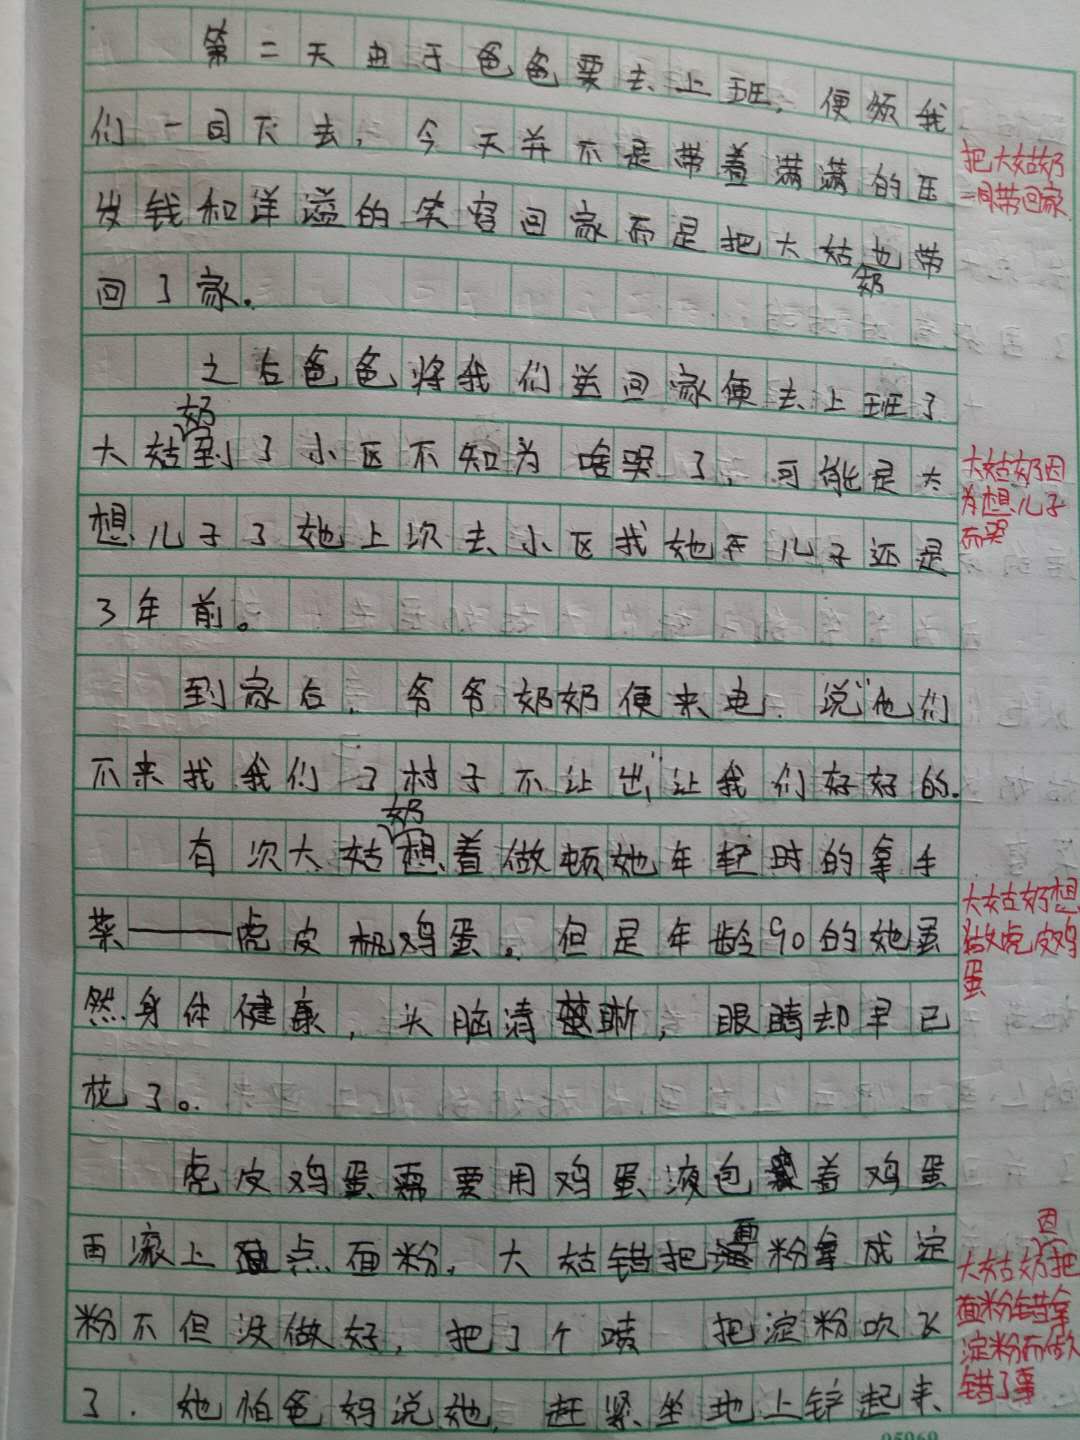 第二天由于爸爸要去上班，便领我
们一回下去，今天并不是带着满满的压
岁钱和洋溢的笑容回家而是把大姑也带
奶
回了家。
之后爸爸将我们送回家便去上班了
奶
大姑到了小区不知为啥哭了，可能是太
想儿子了她上次去小区找她干儿子还是
3年前。
到家后，爷爷奶奶便来电，说"他们
不来找我们了村子不让出"让我们好好的.
奶
有次大姑想着做顿她年轻时的拿手
菜——虎皮鸡蛋。但是年龄90的她虽
然身体健康，头脑清晰，眼睛却早已
花了。
虎皮鸡蛋需要用鸡蛋液包着鸡蛋
再滚上点面粉，大姑错把面粉拿成淀
粉不但没做好，把了个喷 把淀粉吹飞
了.她怕爸妈说她，赶紧坐地上铲起来
把大姑奶
一同带回家
大姑奶因
为想儿子
而哭
大姑奶想
做虎皮鸡
蛋
因
大姑奶把
面粉错拿
淀粉而做
错了事
05969